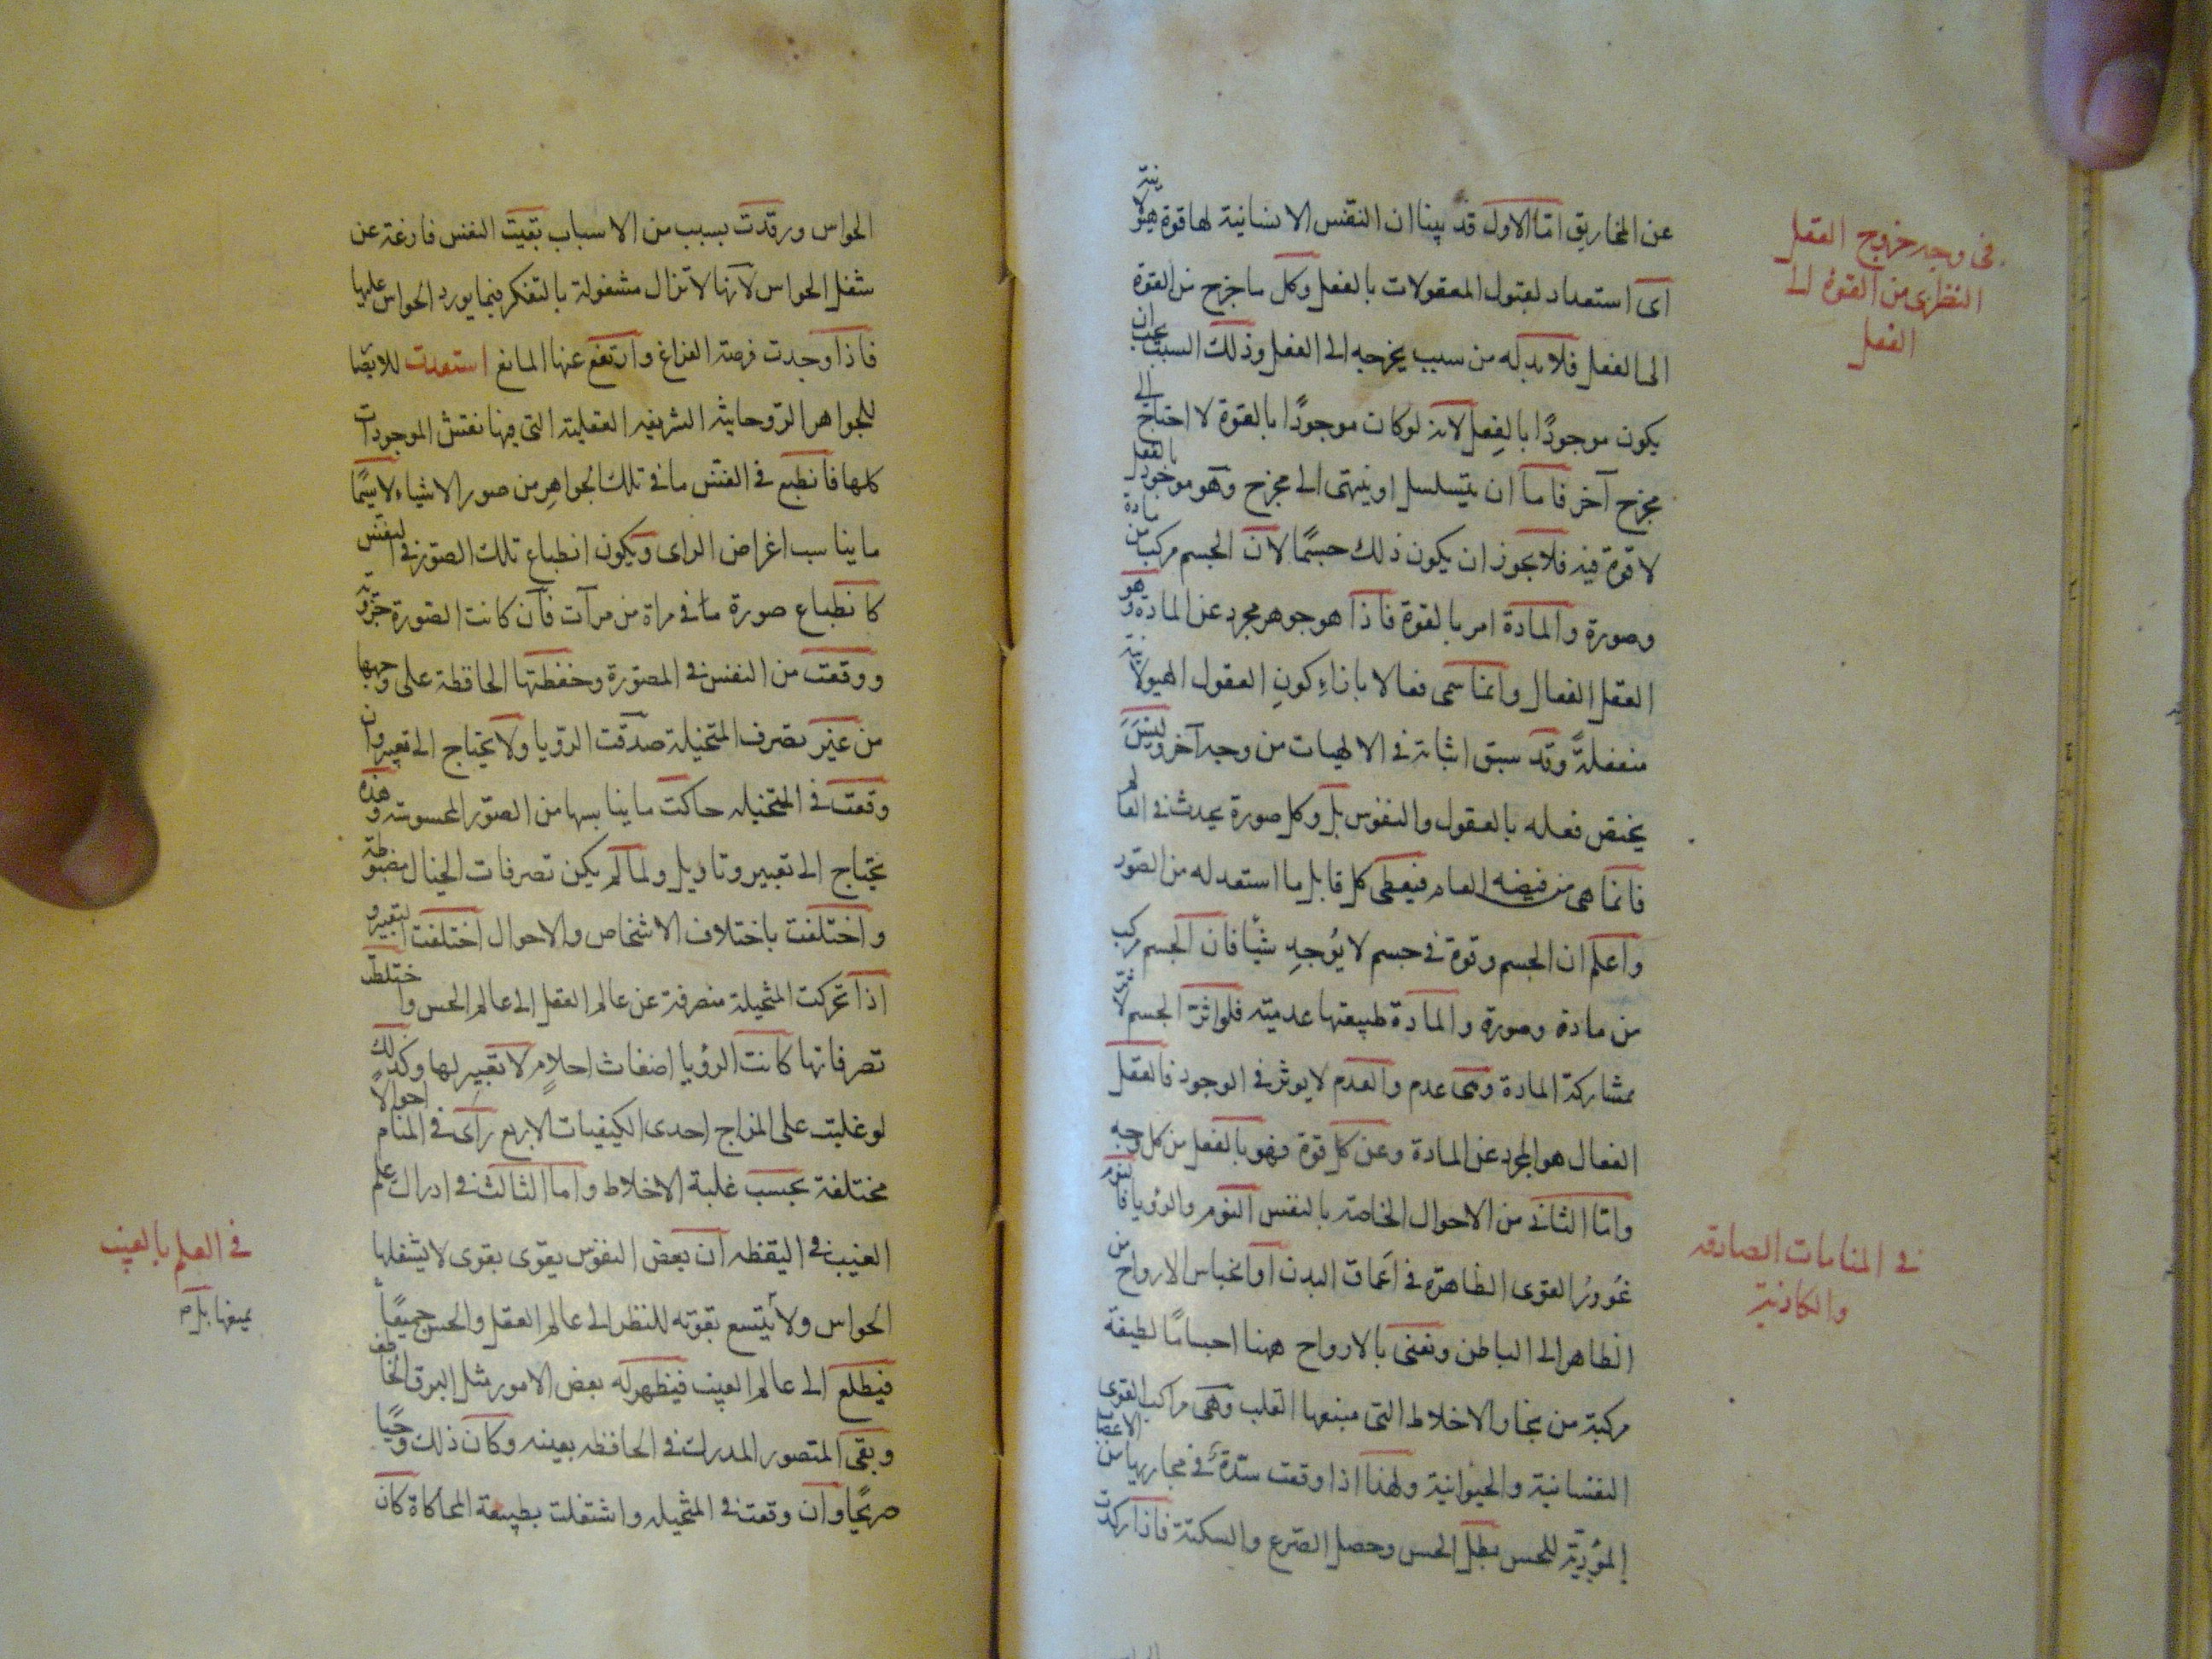 عن المخاريق اما الاول قد بينا ان النفس الانسانية لها قوة هيولانية
اى استعداد لقبول المعقولات بالفعل وكل ما خرج من القوة
الى الفعل فلا بد له من سبب يخرجه الى الفعل وذلك السبب يجب ان
يكون موجودًا بالفعل لانه لو كان موجودًا بالقوة لا احتاج الى
مخرج آخر فاما ان يتسلسل او ينتهى الى مخرج وهو موجود بالفعل
لا قوة فيه فلا يجوز ان يكون ذلك جسمًا لان الجسم مركب من مادة
وصورة والمادة امر بالقوة فاذا هو جوهر مجرد عن المادة وهو
العقل الفعال وانما سمى فعالا بازاء كون العقول الهيولانية
منفعلة وقد سبق اثباته فى الالهيات من وجه آخر وليس
يختص فعله بالعقول والنفوس بل وكل صورة يحدث فى العالم
فانما هى من فيضه العام فيعطى كل قابل ما استعد له من الصور
واعلم ان الجسم وقوة فى جسم لا يوجد شيًا فان الجسم مركب
من مادة وصورة والمادة طبيعتها عدمية فلو اثر الجسم لاثر
بمشاركة المادة وهى عدم والعدم لا يوثر فى الوجود فالعقل
الفعال هو المجرد عن المادة وعن كل قوة فهو بالفعل من كل وجه
واما الثانى من الاحوال الخاصة بالنفس النوم والرؤيا فالنوم
غوور القوى الظاهرة فى اعماق البدن او انخباس الارواح من
الظاهر الى الباطن ونعنى بالارواح ههنا اجسامًا لطيفة
مركبة من بخار الاخلاط التى منبعها القلب وهى مراكب القوى
النفسانية والحيوانية ولهذا اذا وقعت سدة فى مجاريها من الاعصاب
المؤدية للحس بطل الحس وحصل الصرع والسكتة فاذا ركدت
فى وجه خروج العقل
النظرى من القوة الى
الفعل
فى المنامات الصادقه
والكاذبة
الحواس ورقدت بسبب من الاسباب بقيت النفس فارغة عن
شغل الحواس لانها لا تزال مشغولة بالتفكر فيما يورد الحواس عليها
فاذا وجدت فرصة الفراغ وارتفع عنها المانع استعدت للاتصال
للجواهر الروحانية الشريفه العقلية التى فيها نقش الموجودات
كلها فانطبع فى النفس ما فى تلك الجواهر من صور الاشياء لاسيما
ما يناسب اغراض الراى ويكون انطباع تلك الصور فى النفس
كانطباع صورة ما فى مراة من مرآت فان كانت الصورة جزوية
ووقعت من النفس فى المصورة وحفظتها الحافظة على وجهها
من غير تصرف المتخيلة صدقت الرؤيا ولا يحتاج الى تعبير وان
وقعت فى المتخيله حاكت ما يناسبها من الصور المحسوسة وهذه
يحتاج الى تعبير وتاويل ولما لم يكن تصرفات الخيال مضبوطة
واختلفت باختلاف الاشخاص والاحوال اختلفت التعبير و
اذا تحركت المتخيلة منصرفة عن عالم العقل الى عالم الحس واختلطت
تصرفاتها كانت الرؤيا اضغاث احلام لا تعبير لها وكذلك
لو غلبت على المزاج احدى الكيفيات الاربع رأى فى المنام احوالا
مختلفة بحسب غلبة الاخلاط واما الثالث فى ادراك علم
الغيب فى اليقظه ان بعض النفوس يقوى بقوى لا يشغلها
الحواس ولا يتسع بقوته للنظر الى عالم العقل والحس جميعًا
فيطلع الى عالم الغيب فيظهر له بعض الامور مثل البرق الخاطف
وبقى المتصور المدرك فى الحافظه بعينه وكان ذلك وحيًا
صريحًا وان وقعت فى المتخيله واشتغلت بطبيعة المحاكاة كان
فى العلم بالغيب
يمنعها بل م